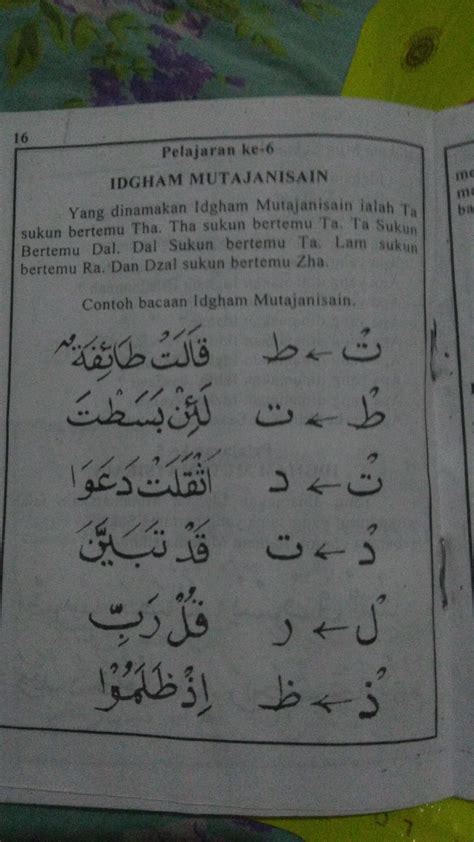 16
Pelajaran ke-6
IDGHAM MUTAJANISAIN
Yang dinamakan Idgham Mutajanisain ialah Ta
sukun bertemu Tha. Tha sukun bertemu Ta. Ta Sukun
Bertemu Dal. Dal Sukun bertemu Ta. Lam sukun
bertemu Ra. Dan Dzal sukun bertemu Zha.
Contoh bacaan Idgham Mutajanisain.
تْ ← ط قَالَتْ طَائِفَةٌ
طْ ← ت لَئِنْ بَسَطْتَ
تْ ← د اَثْقَلَتْ دَعَوَا
دْ ← ت قَدْ تَبَيَّنَ
لْ ← ر قُلْ رَبِّ
ذْ ← ظ اِذْ ظَلَمُوْا
me
ma
ba